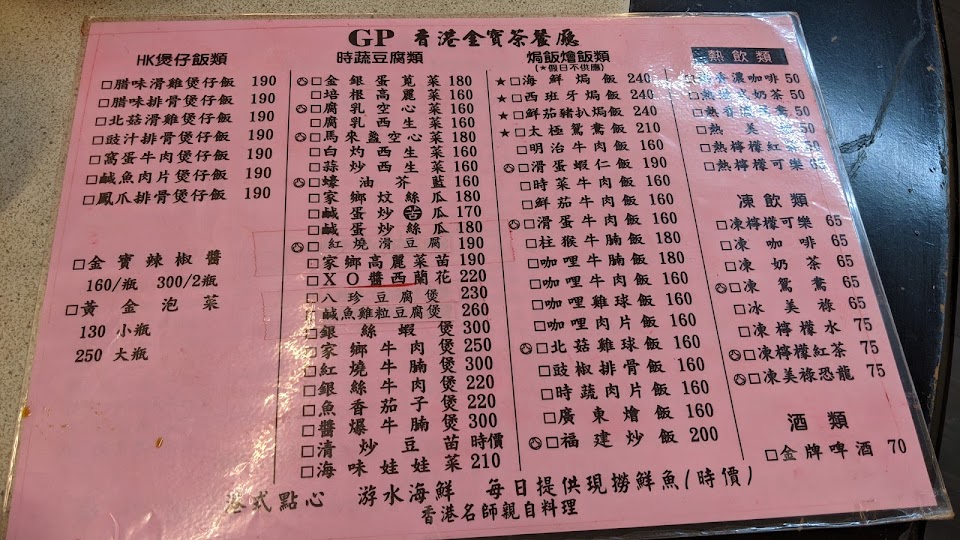 GP 香港金寶茶餐廳
HK煲仔飯類
□腊味滑雞煲仔飯 190
□腊味排骨煲仔飯 190
□北菇滑雞煲仔飯 190
□豉汁排骨煲仔飯 190
□窩蛋牛肉煲仔飯 190
□鹹魚肉片煲仔飯 190
□鳳爪排骨煲仔飯 190
□金寶辣椒醬
160/瓶 300/2瓶
□黃金泡菜
130 小瓶
250 大瓶
時蔬豆腐類
□金銀蛋莧菜 180
□培根高麗菜 160
□腐乳空心菜 160
□腐乳西生菜 160
□馬來盞空心菜 180
□白灼西生菜 160
□蒜炒西生菜 160
□蠔油芥藍 160
□家鄉炆絲瓜 180
□鹹蛋炒苦瓜 170
□鹹蛋炒絲瓜 180
□紅燒滑豆腐 190
□家鄉高麗菜苗 190
□XO醬西蘭花 220
□八珍豆腐煲 230
□鹹魚雞粒豆腐煲 260
□銀絲蝦煲 300
□家鄉牛肉煲 250
□紅燒牛腩煲 300
□銀絲牛肉煲 220
□魚香茄子煲 220
□醬爆牛腩煲 300
□清炒豆苗 時價
□海味娃娃菜 210
焗飯燴飯類
(★假日不供應)
★□海鮮焗飯 240
★□西班牙焗飯 240
★□鮮茄豬扒焗飯 240
★□太極鴛鴦飯 210
□明治牛肉飯 160
□滑蛋蝦仁飯 190
□時菜牛肉飯 160
□鮮茄牛肉飯 160
□滑蛋牛肉飯 160
□柱猴牛腩飯 180
□咖哩牛腩飯 180
□咖哩牛肉飯 160
□咖哩雞球飯 160
□咖哩肉片飯 160
□北菇雞球飯 160
□豉椒排骨飯 160
□時蔬肉片飯 160
□廣東燴飯 160
□福建炒飯 200
熱飲類
濃咖啡 50
奶茶 50
鴦 50
□熱美 50
□熱檸檬紅茶 50
□熱檸檬可樂 65
凍飲類
□凍檸檬可樂 65
□凍咖啡 65
□凍奶茶 65
□凍鴛鴦 65
□冰美祿 65
□凍檸檬水 75
□凍檸檬紅茶 75
□凍美祿恐龍 75
酒類
□金牌啤酒 70
港式點心 游水海鮮 每日提供現撈鮮魚(時價)
香港名師親自料理